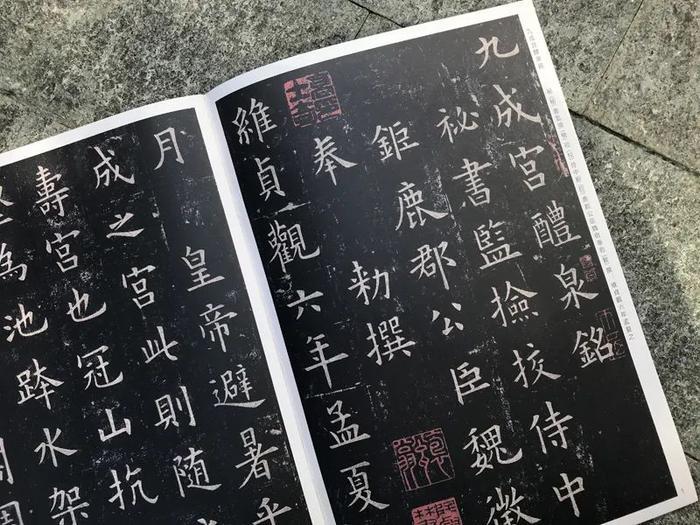 九成宮醴泉銘
祕書監撿挍侍中
鉅鹿郡公臣魏徵
奉 勅撰
維貞觀六年孟夏
月 皇帝避暑乎
成之宮此則隨
壽宮也冠山抗
為池跨水架